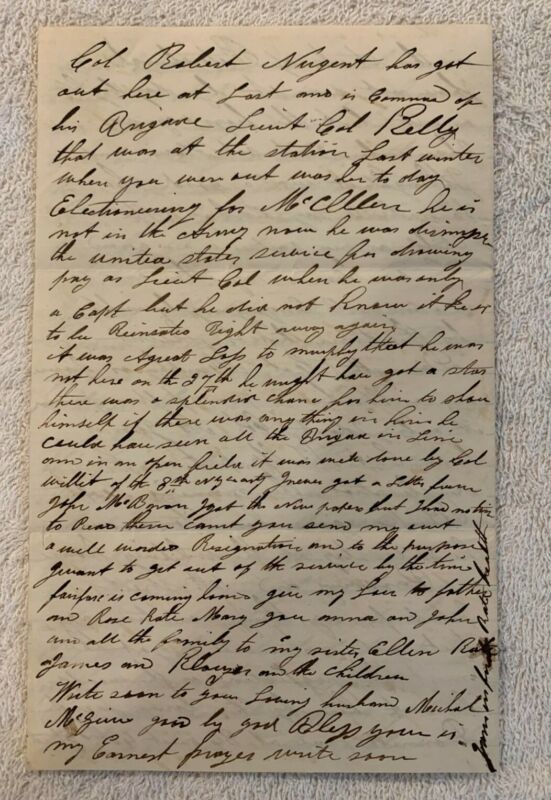 Col Robert Nugent has got
out here at Last and is Command of
his Brigade Lieut Col Kelly
that was at the station Last winter
when you were out was her to day
Electioneering for McCllen he is
not in the Army now he was
the united states service for drawing
pay as Lieut Col when he was only
a Capt but he did not Know it he
to be Reinsated Right away again
it was Agreat Loss to murphy that he was
not here on the 27th he might have got a star
there was a splendid chance for him to show
himself if there was any thing in him he
could have seen all the Brigad in Line
and in an open field it was well done by Col
of the 8th I never got a Letter from
John I got the New papers but I had no time
to Read them Cannt you send my out
a well worded Resignation and to the purpose
I want to get out of the service by the time
is coming home give my Love to father
and Rose Kate Mary you anna and John
and all the family to my sister Ellen
James and and the Children
Write soon to your Loving husband Michal
McGuire good by god Bless you is
my Earnest prayer write soon